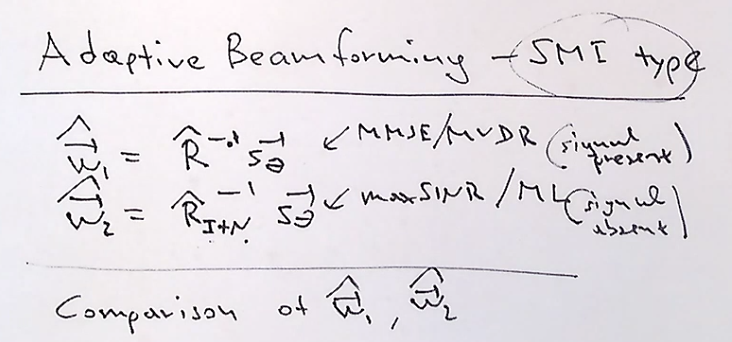 Adaptive Beamforming - SMI type
ŵ⃗₁ = R̂⁻¹ s⃗_θ ↙ MMSE/MVDR (signal present)
ŵ⃗₂ = R̂_{I+N}⁻¹ s⃗_θ ↙ maxSINR / ML (signal absent)
Comparison of ŵ⃗₁, ŵ⃗₂